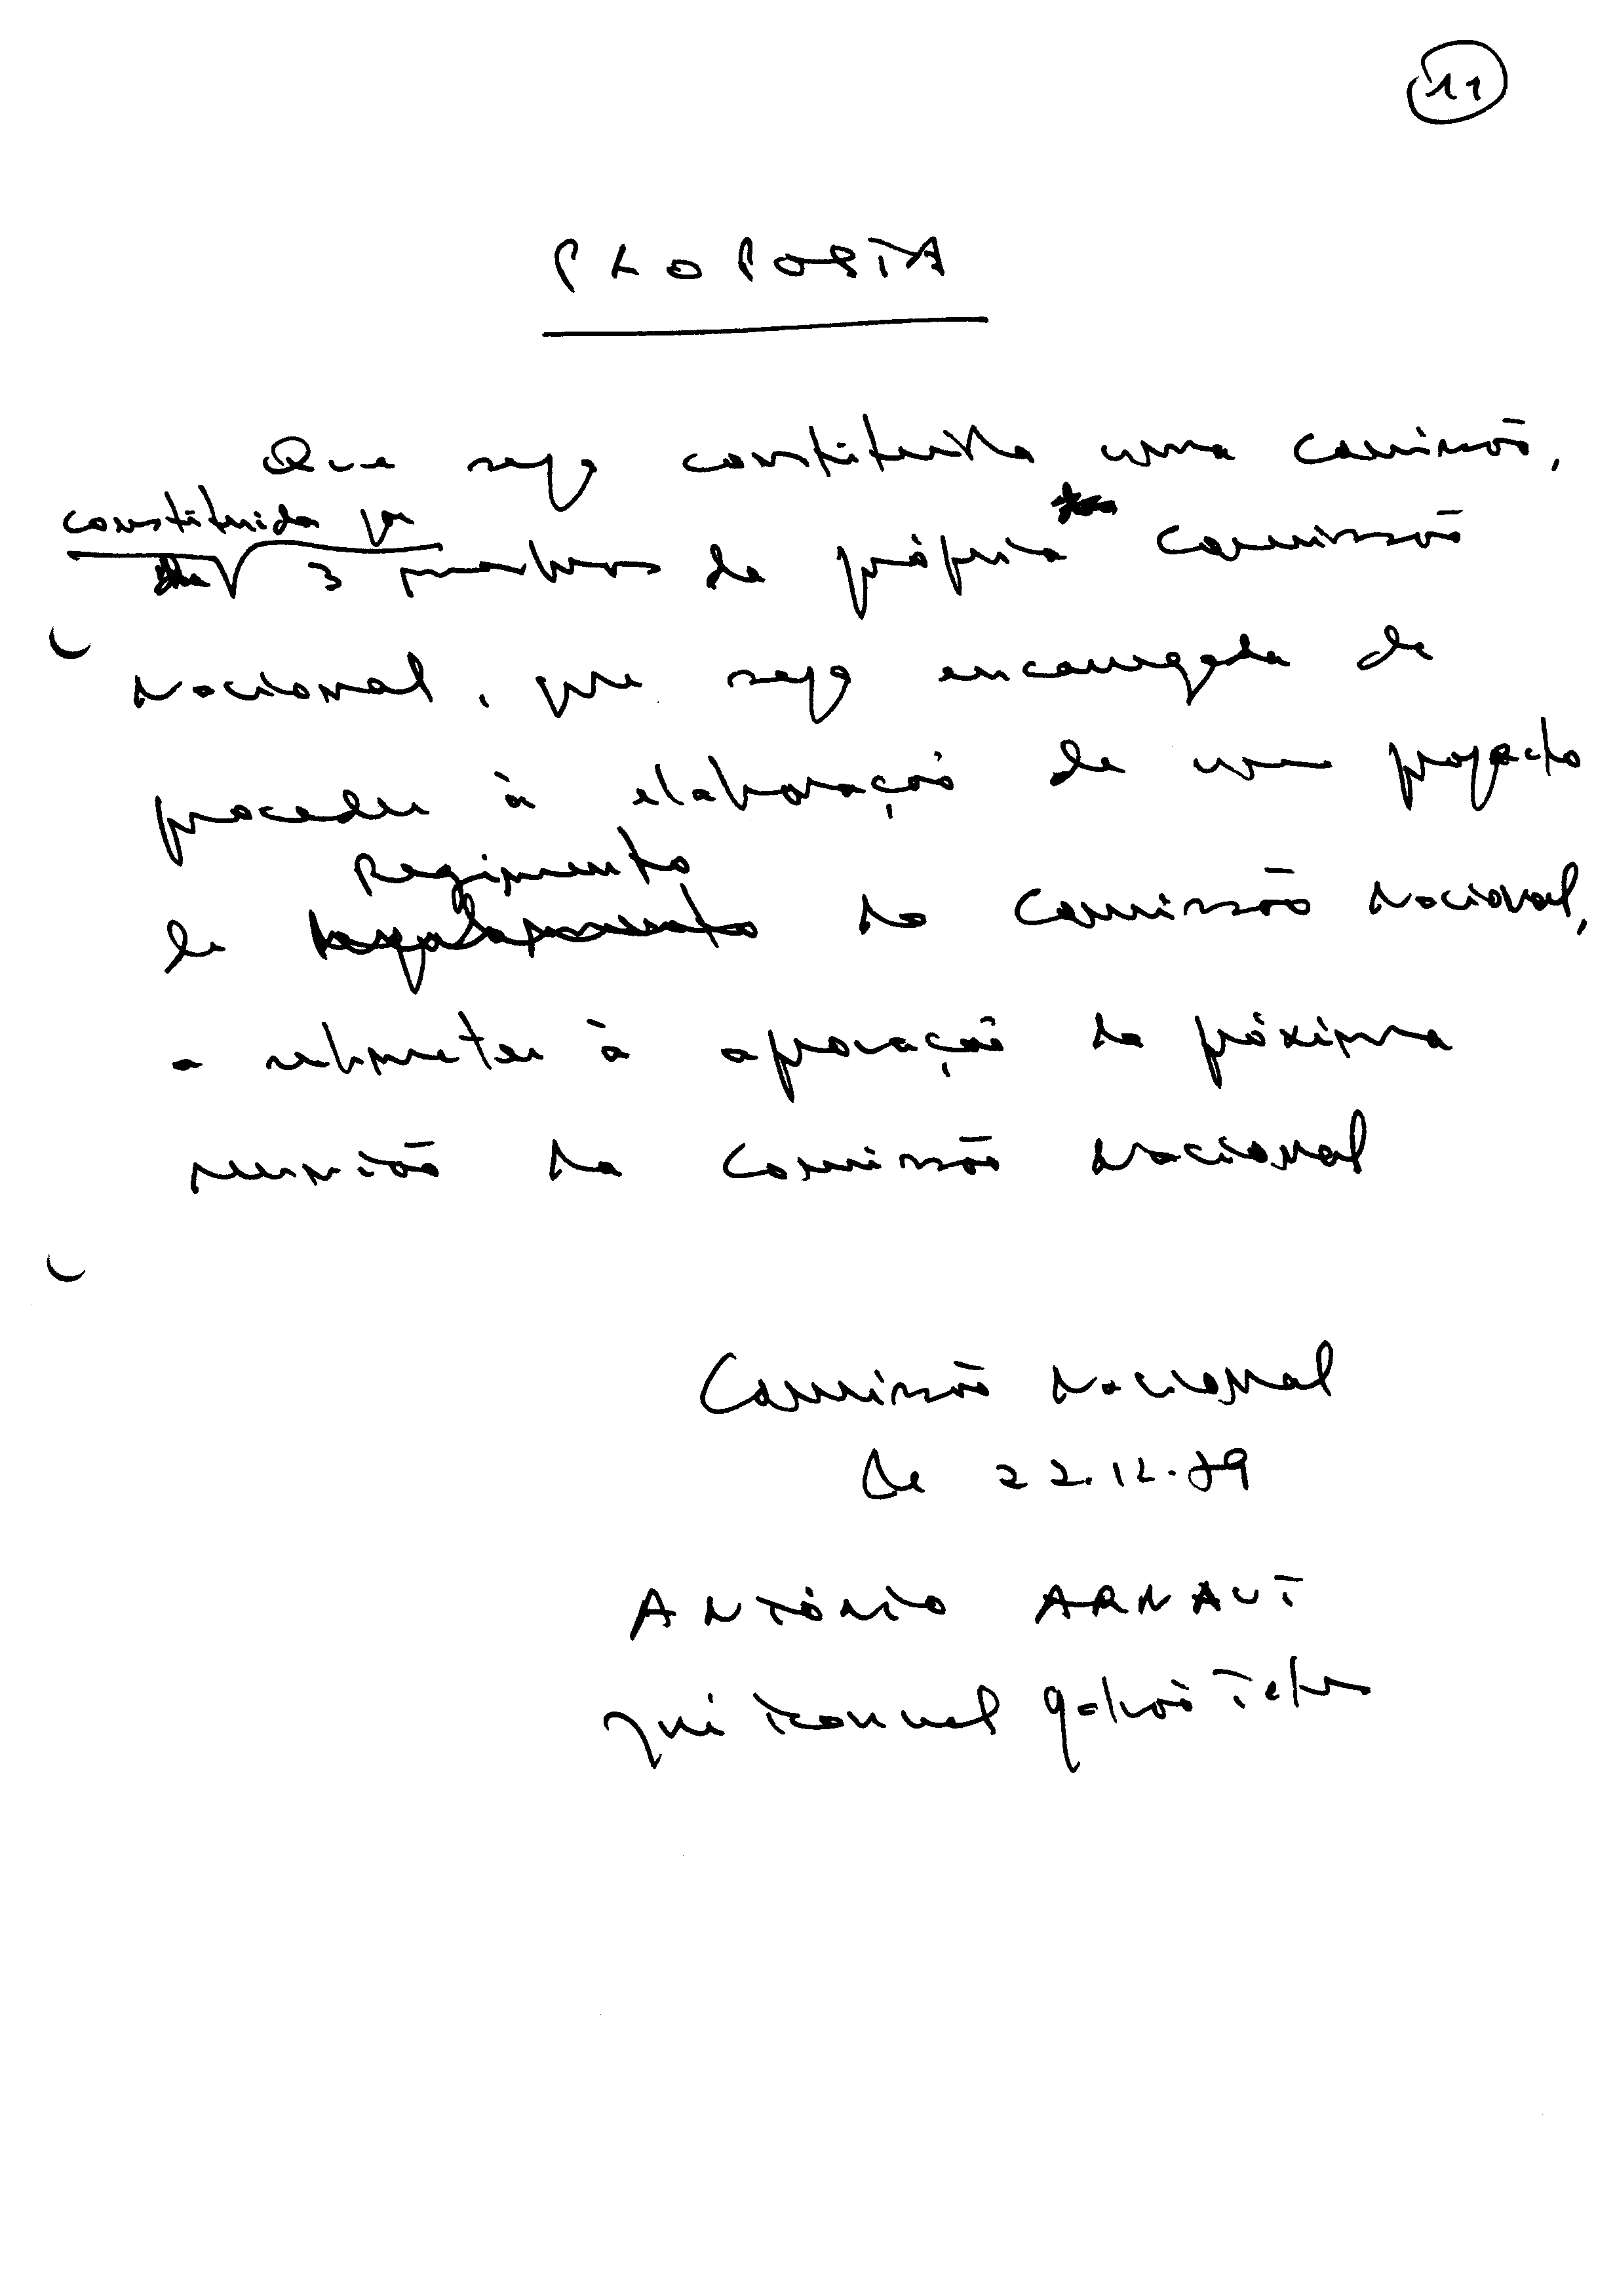 11
PROPOSTA
Que seja constituída uma comissão,
constituída por
3 membros da própria Comissão
Nacional, que seja encarregada de
proceder à elaboração de um projecto
Regimento
de regulamento da Comissão Nacional,
a submeter à aprovação da próxima
reunião da Comissão Nacional
Comissão Nacional
de 22.12.89
ANTÓNIO ARNAUT
Manuel Galvão Teles